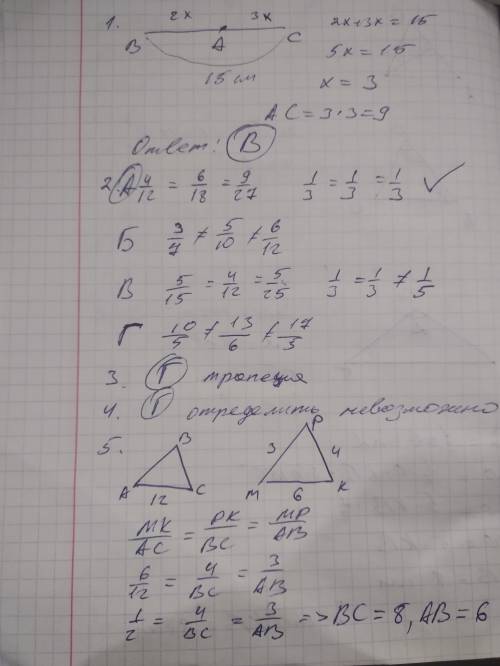 1. 2x 3x 2x+3x=15
B A C 5x=15
15 см x=3
AC=3·3=9
Ответ: В
2. А 4/12 = 6/18 = 9/27 1/3 = 1/3 = 1/3 ✓
Б 3/7 ≠ 5/10 ≠ 6/12
В 5/15 = 4/12 = 5/25 1/3 = 1/3 ≠ 1/5
Г 10/5 ≠ 13/6 ≠ 17/3
3. Г трапеция
4. Г определить невозможно
5. B P
3 4
A 12 C M 6 K
MK/AC = PK/BC = MP/AB
6/12 = 4/BC = 3/AB
1/2 = 4/BC = 3/AB => BC=8, AB=6